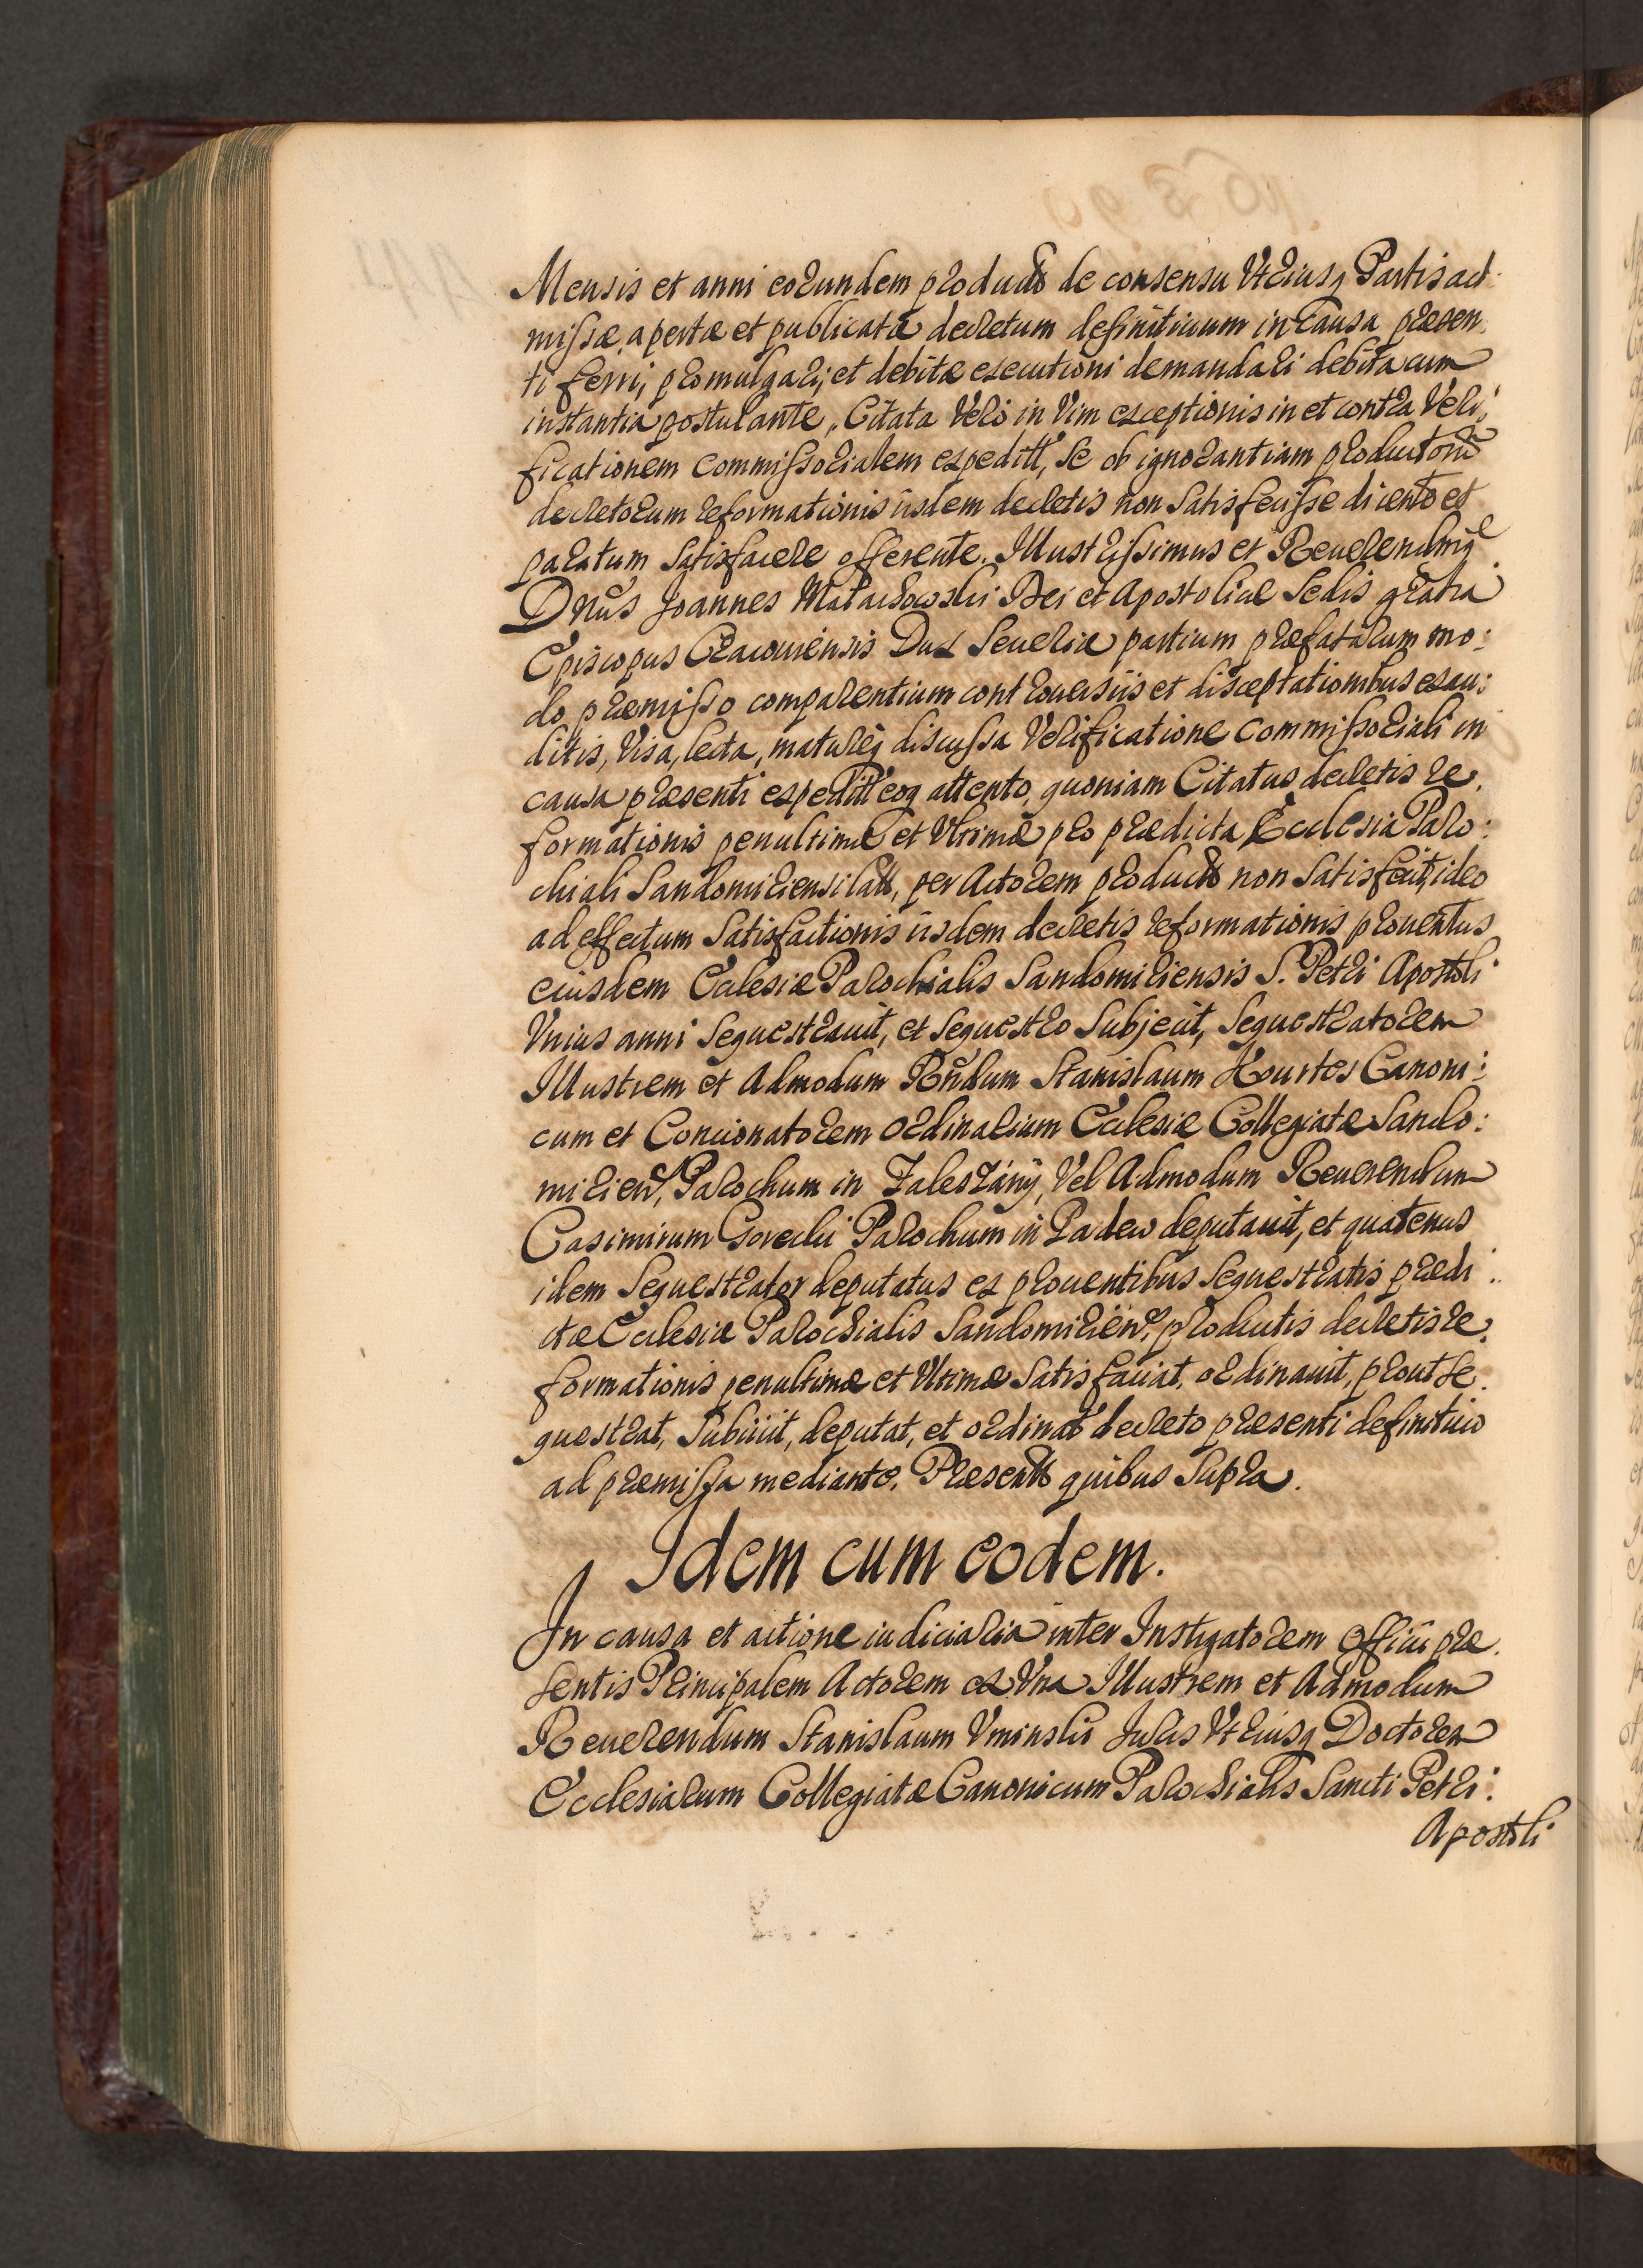 Mensis et anni eorundem product de consensu Utriusq Partis ad
missæ, apertæ et publicatæ decretum definitiuum in causa præsen
ti ferri, promulgari, et debitæ executioni demandari debita cum
instantia postulante. Citata Vero in Vim exceptionis in et contra Veri:
ficationem commissorialem expeditt, Se ob ignorantiam productorū
decretorum reformationis iisdem decretis non Satisfecisse dicente et
paratum Satisfacere offerente. Illustrissimus et Reuerendmꝰ
Dnūs Joannes Małachowski Dei et Apostolicæ Sedis gratia
Episcopus Cracouiensis Dux Seueriæ partium præfatarum mo:
do præmisso comparentium controuersiis et disceptationibus exau:
ditis, Visa, lecta, matureq discussa Verificatione commissoriali in
causa præsenti expeditt eoq attento, quoniam Citatus decretis re,
formationis penultimæ et Ultimæ pro prædicta Ecclesia Paro:
chiali Sandomiriensi latt, per Actorem product non Satisfecit, ideo
ad effectum Satisfactionis iisdem decretis reformationis prouentus
eiusdem Ecclesiæ Parochialis Sandomiriensis S. Petri Apostoli
Vnius anni Sequestrauit, et Sequestro Subjecit, Sequestratorem
Illustrem et Admodum Rndum Stanislaum Kurtes Canoni:
cum et Concionatorem Ordinarium Ecclesiæ Collegiatæ Sando:
mirien, Parochum in Zaleszany, Vel Admodum Reuerendum
Casimirum Gorecki Parochum in Padew deputauit, et quatenus
idem Sequestrator deputatus ex prouentibus Sequestratis prædi:
ctæ Ecclesiæ Parochialis Sandomirien, productis decretis re,
formationis penultimæ et Ultimæ Satisfaciat, ordinauit, prout Se
questrat, Subiicit, deputat, et ordinat decreto præsenti definitiuo
ad præmissa mediante. Præsentt quibus Supra.
Idem cum eodem.
In causa et actione iudiciaria inter Instigatorem Officii præ
sentis Principalem Actorem ex Vna Illustrem et Admodum
Reuerendum Stanislaum Vminski Juris Utriusq Doctorem
Ecclesiarum Collegiatæ Canonicum Parochialis Sancti Petri:
Apostoli